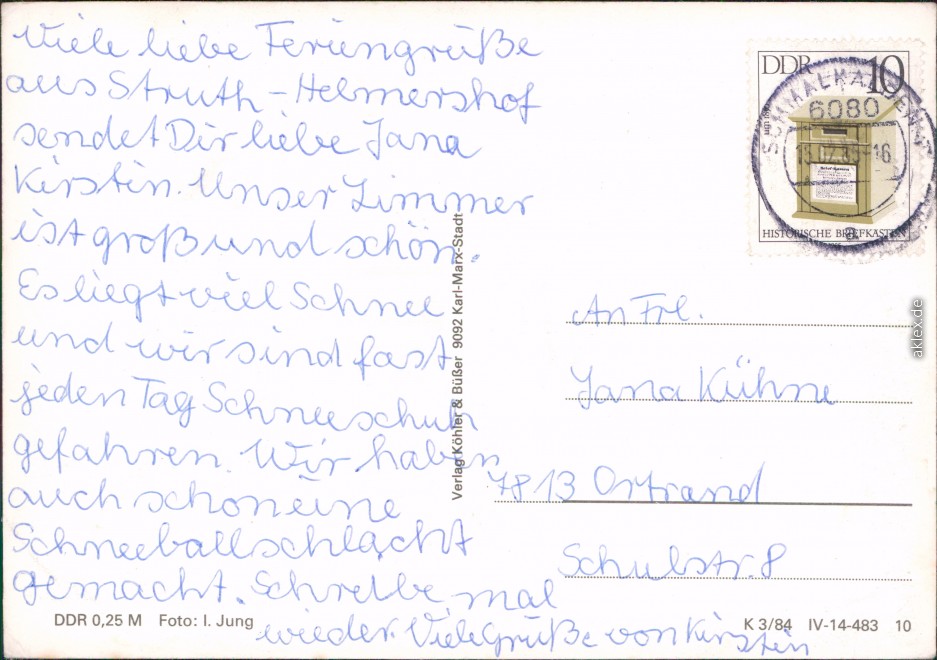 Viele liebe Feriengrüße
aus Struth-Helmershof
sendet Dir liebe Jana
Kirstin. Unser Zimmer
ist groß und schön.
Es liegt viel Schnee
und wir sind fast
jeden Tag Schneeschuh
gefahren. Wir haben
auch schon eine
Schneeballschlacht
gemacht. Schreibe mal
wieder. Viele Grüße von Kirstin
DDR 0,25 M Foto: I. Jung
Verlag Köhler & Büßer 9092 Karl-Marx-Stadt
DDR 10
HISTORISCHE BRIEFKÄSTEN
SCHMALKALDEN
6080
An Frl.
Jana Kühne
7813 Ortrand
Schulstr. 8
K 3/84 IV-14-483 10
aklex.de